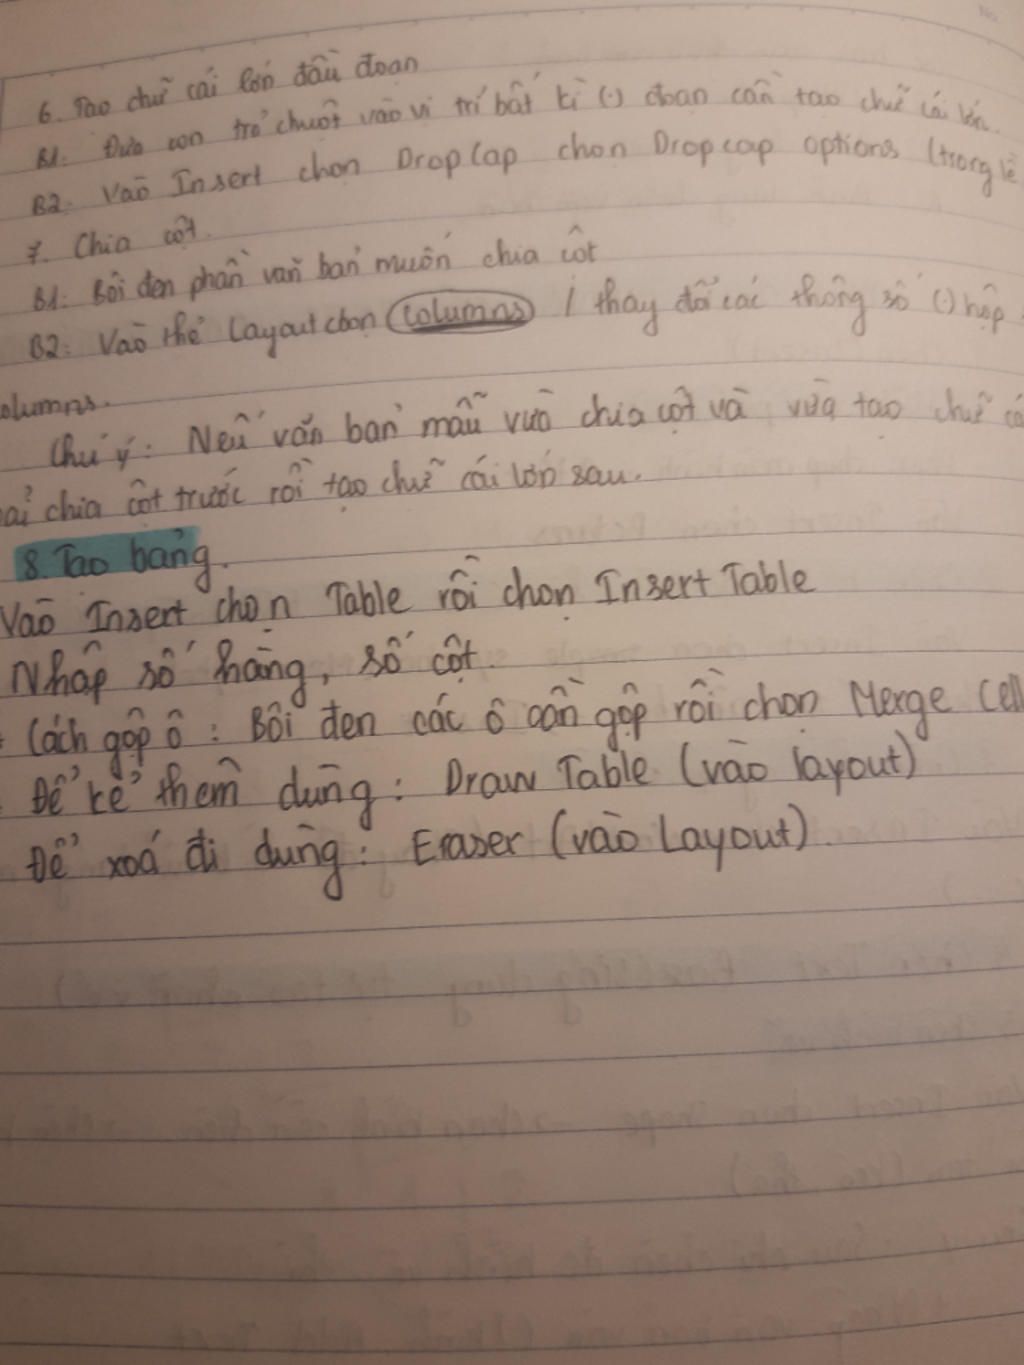 6. Tạo chữ cái lớn đầu đoạn
B1: Đưa con trỏ chuột vào vị trí bất kì (.) đoạn cần tạo chữ cái lớn.
B2: Vào Insert chọn Drop Cap chọn Dropcap options (trong lề
7. Chia cột.
B1: Bôi đen phần văn bản muốn chia cột
B2: Vào thẻ Layout chọn columns / thay đổi các thông số (.) hộp
olumns.
Chú ý: Nếu văn bản mẫu vừa chia cột và vừa tạo chữ cá
ải chia cột trước rồi tạo chữ cái lớn sau.
8. Tạo bảng.
Vào Insert chọn Table rồi chọn Insert Table
Nhập số hàng, số cột
Cách gộp ô: Bôi đen các ô cần gộp rồi chọn Merge Cell
Để kẻ thêm dùng: Draw Table (vào layout)
Để xoá đi dùng: Eraser (vào Layout).